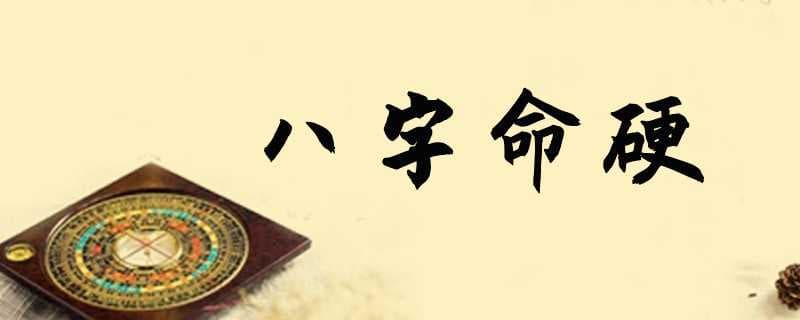 八字命硬